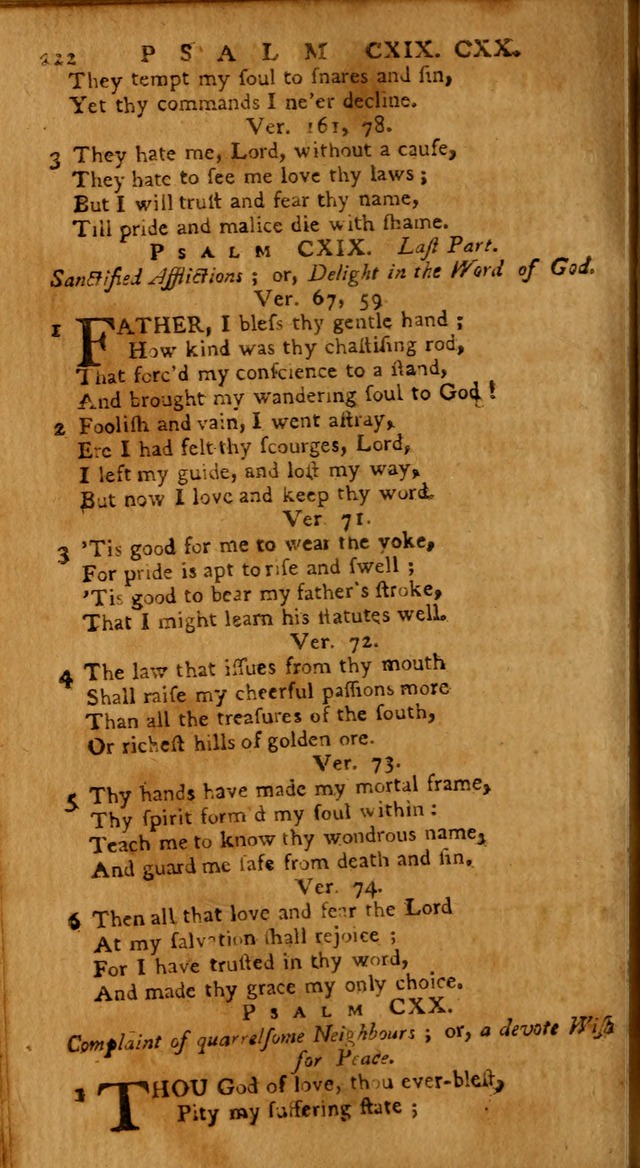 222 PSALM CXIX. CXX.
They tempt my ſoul to ſnares and ſin,
Yet thy commands I ne'er decline.
Ver. 161, 78.
3 They hate me, Lord, without a cauſe,
They hate to ſee me love thy laws;
But I will truſt and fear thy name,
Till pride and malice die with ſhame.
PSALM CXIX. Laſt Part.
Sanctified Afflictions; or, Delight in the Word of God.
Ver. 67, 59
1 FATHER, I bleſs thy gentle hand;
How kind was thy chaſtiſing rod,
That forc'd my conſcience to a ſtand,
And brought my wandering ſoul to God!
2 Fooliſh and vain, I went aſtray,
Ere I had felt thy ſcourges, Lord,
I left my guide, and loſt my way,
But now I love and keep thy word.
Ver 71.
3 'Tis good for me to wear the yoke,
For pride is apt to riſe and ſwell;
'Tis good to bear my father's ſtroke,
That I might learn his ſtatutes well.
Ver. 72.
4 The law that iſſues from thy mouth
Shall raiſe my cheerful paſſions more
Than all the treaſures of the ſouth,
Or richeſt hills of golden ore.
Ver. 73.
5 Thy hands have made my mortal frame,
Thy ſpirit form'd my ſoul within:
Teach me to know thy wondrous name,
And guard me ſafe from death and ſin.
Ver. 74.
6 Then all that love and fear the Lord
At my ſalvation ſhall rejoice;
For I have truſted in thy word,
And made thy grace my only choice.
PSALM CXX.
Complaint of quarrelſome Neighbours; or, a devote Wiſh
for Peace.
1 THOU God of love, thou ever-bleſt,
Pity my ſuffering ſtate;